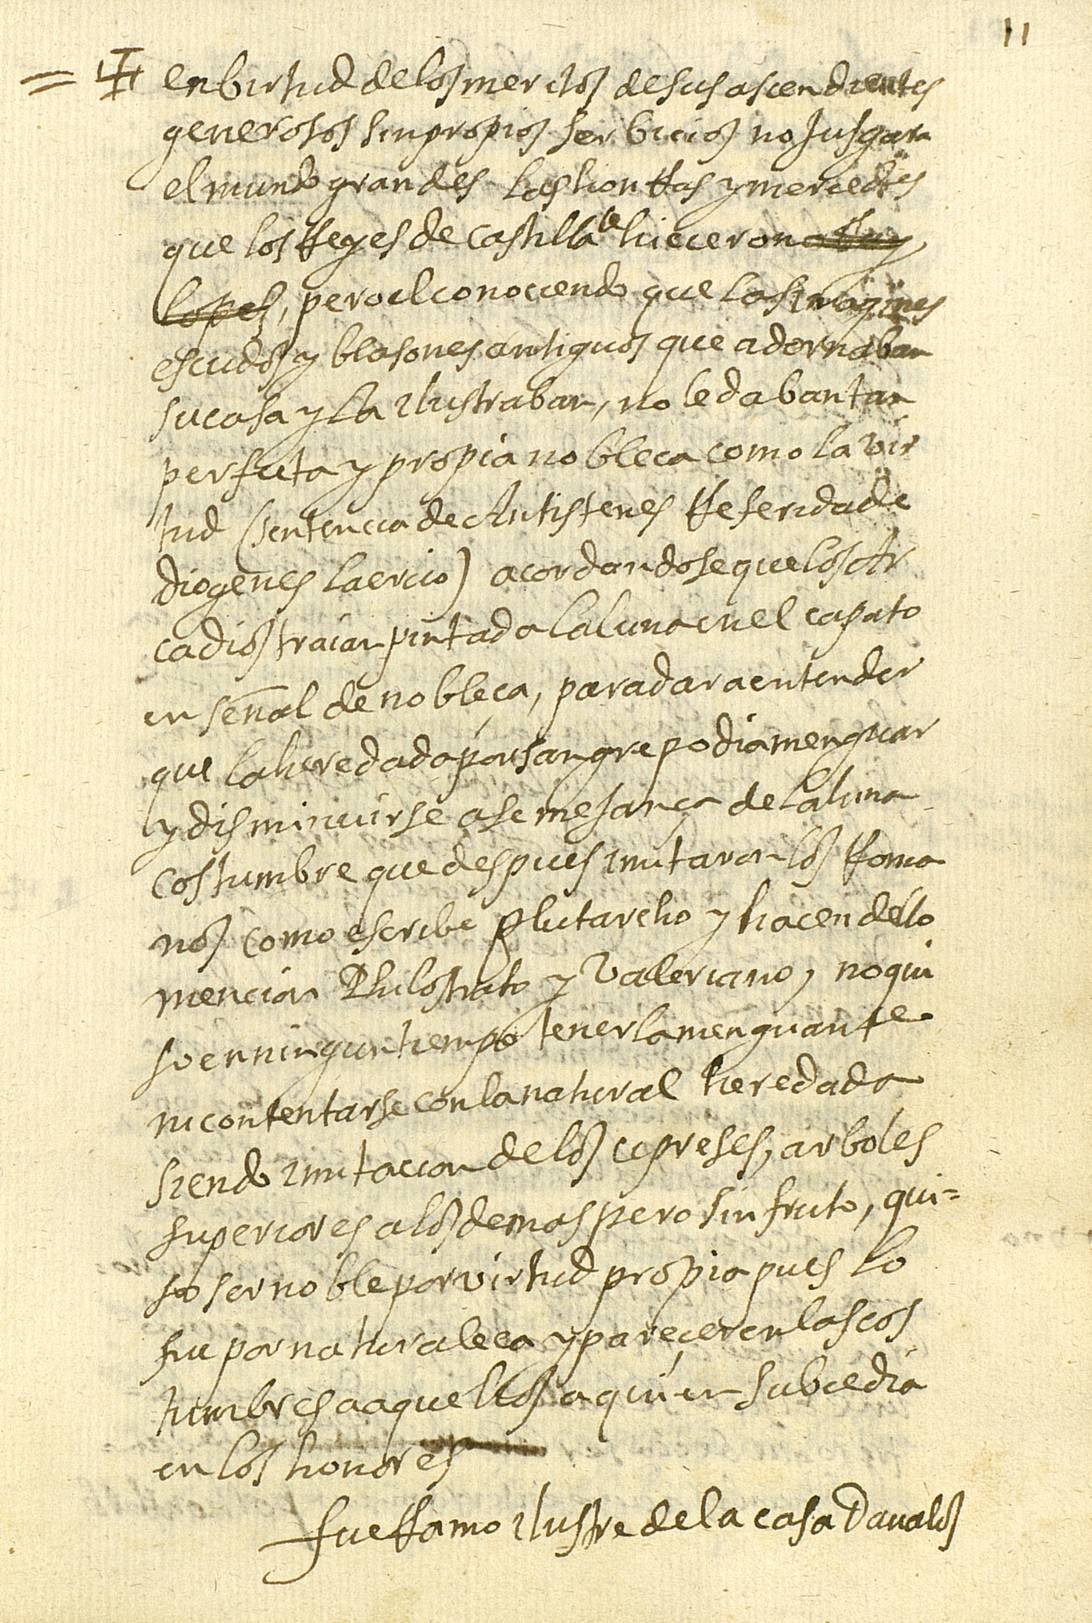 11
= en birtud de los meritos de sus ascendientes
generosos sin propios serbicios no jusgara
el mundo grandes las honRas y mercedes
que los Reyes de Castilla le hicieron a Ruy
lopes, pero el conociendo que las imagines
escudos y blasones antiguos que adornaban
su casa y la ilustraban, no le daban tan
perfeta y propia nobleça como la vir
tud (sentencia de Antistenes Referida de
Diogenes laercio) acordandose que los Ar
cadios traian pintada la luna en el capato
en señal de nobleça, para dar a entender
que la heredada por sangre podia menguar
y disminuirse a semejança de la luna
costumbre que despues imitaron los Roma
nos como escribe Plutarcho y hacen dello
mencion Philostrato y Valeriano, no qui
so en ningun tiempo tenerla menguante
ni contentarse con la natural heredada
siendo imitacion de los cipreses, arboles
superiores a los demas pero sin fruto, qui=
so ser noble por virtud propia pues lo
fue por naturaleca y parecer en las cos
tumbres a aquellos a quien subcedia
en los honores
fue Ramo ilustre de la casa Davalos